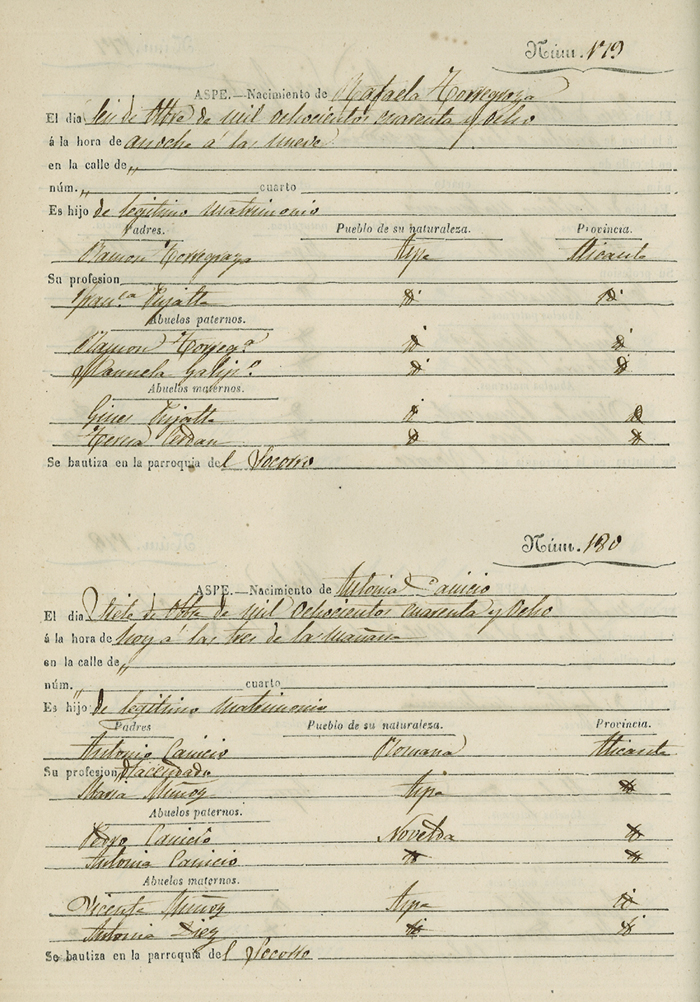 Núm. 179
ASPE.—Nacimiento de Rafaela Torregroza
El dia seis de Otbre de mil ochocientos cuarenta y Ocho
á la hora de anoche á las nueve
en la calle de „
núm. „ cuarto
Es hijo de legitimo matrimonio
Padres. Pueblo de su naturaleza. Provincia.
Ramon Torregroza Aspe Alicante
Su profesion
Fran.ca Pujalte id id
Abuelos paternos.
Ramon Torreg.a id id
Manuela id id
Abuelos maternos.
Gines Pujalte id id
Teresa Cerdan id id
Se bautiza en la parroquia del Socorro
Núm. 180
ASPE.—Nacimiento de Antonia Canicio
El dia Siete de Otbre de mil Ochocientos cuarenta y Ocho
á la hora de hoy á las tres de la mañana
en la calle de „
núm. „ cuarto
Es hijo de legitimo matrimonio
Padres Pueblo de su naturaleza. Provincia.
Antonio Canicio Romana Alicante
Su profesion Hacendado
Maria Muñoz Aspe id
Abuelos paternos.
Pedro Canicio Novelda id
Antonia Canicio id id
Abuelos maternos.
Vicente Muñoz Aspe id
Antonia Diez id id
Se bautiza en la parroquia del Socorro